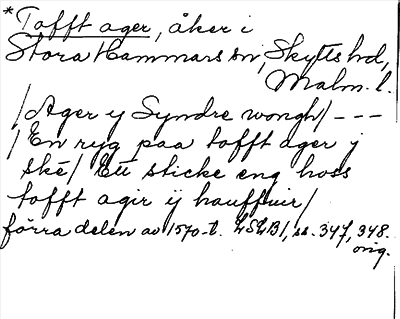 *Tofft ager, åker i
Stora Hammars sn, Skytts hd,
Malm. l.
/Ager y Syndre wongh/ - - -
/En ryg paa tofft ager y
ske/ Ett sticke eng hoss
tofft agir ij hauffuir/
förra delen av 1570-t. LSLB1, ss. 347, 348.
orig.